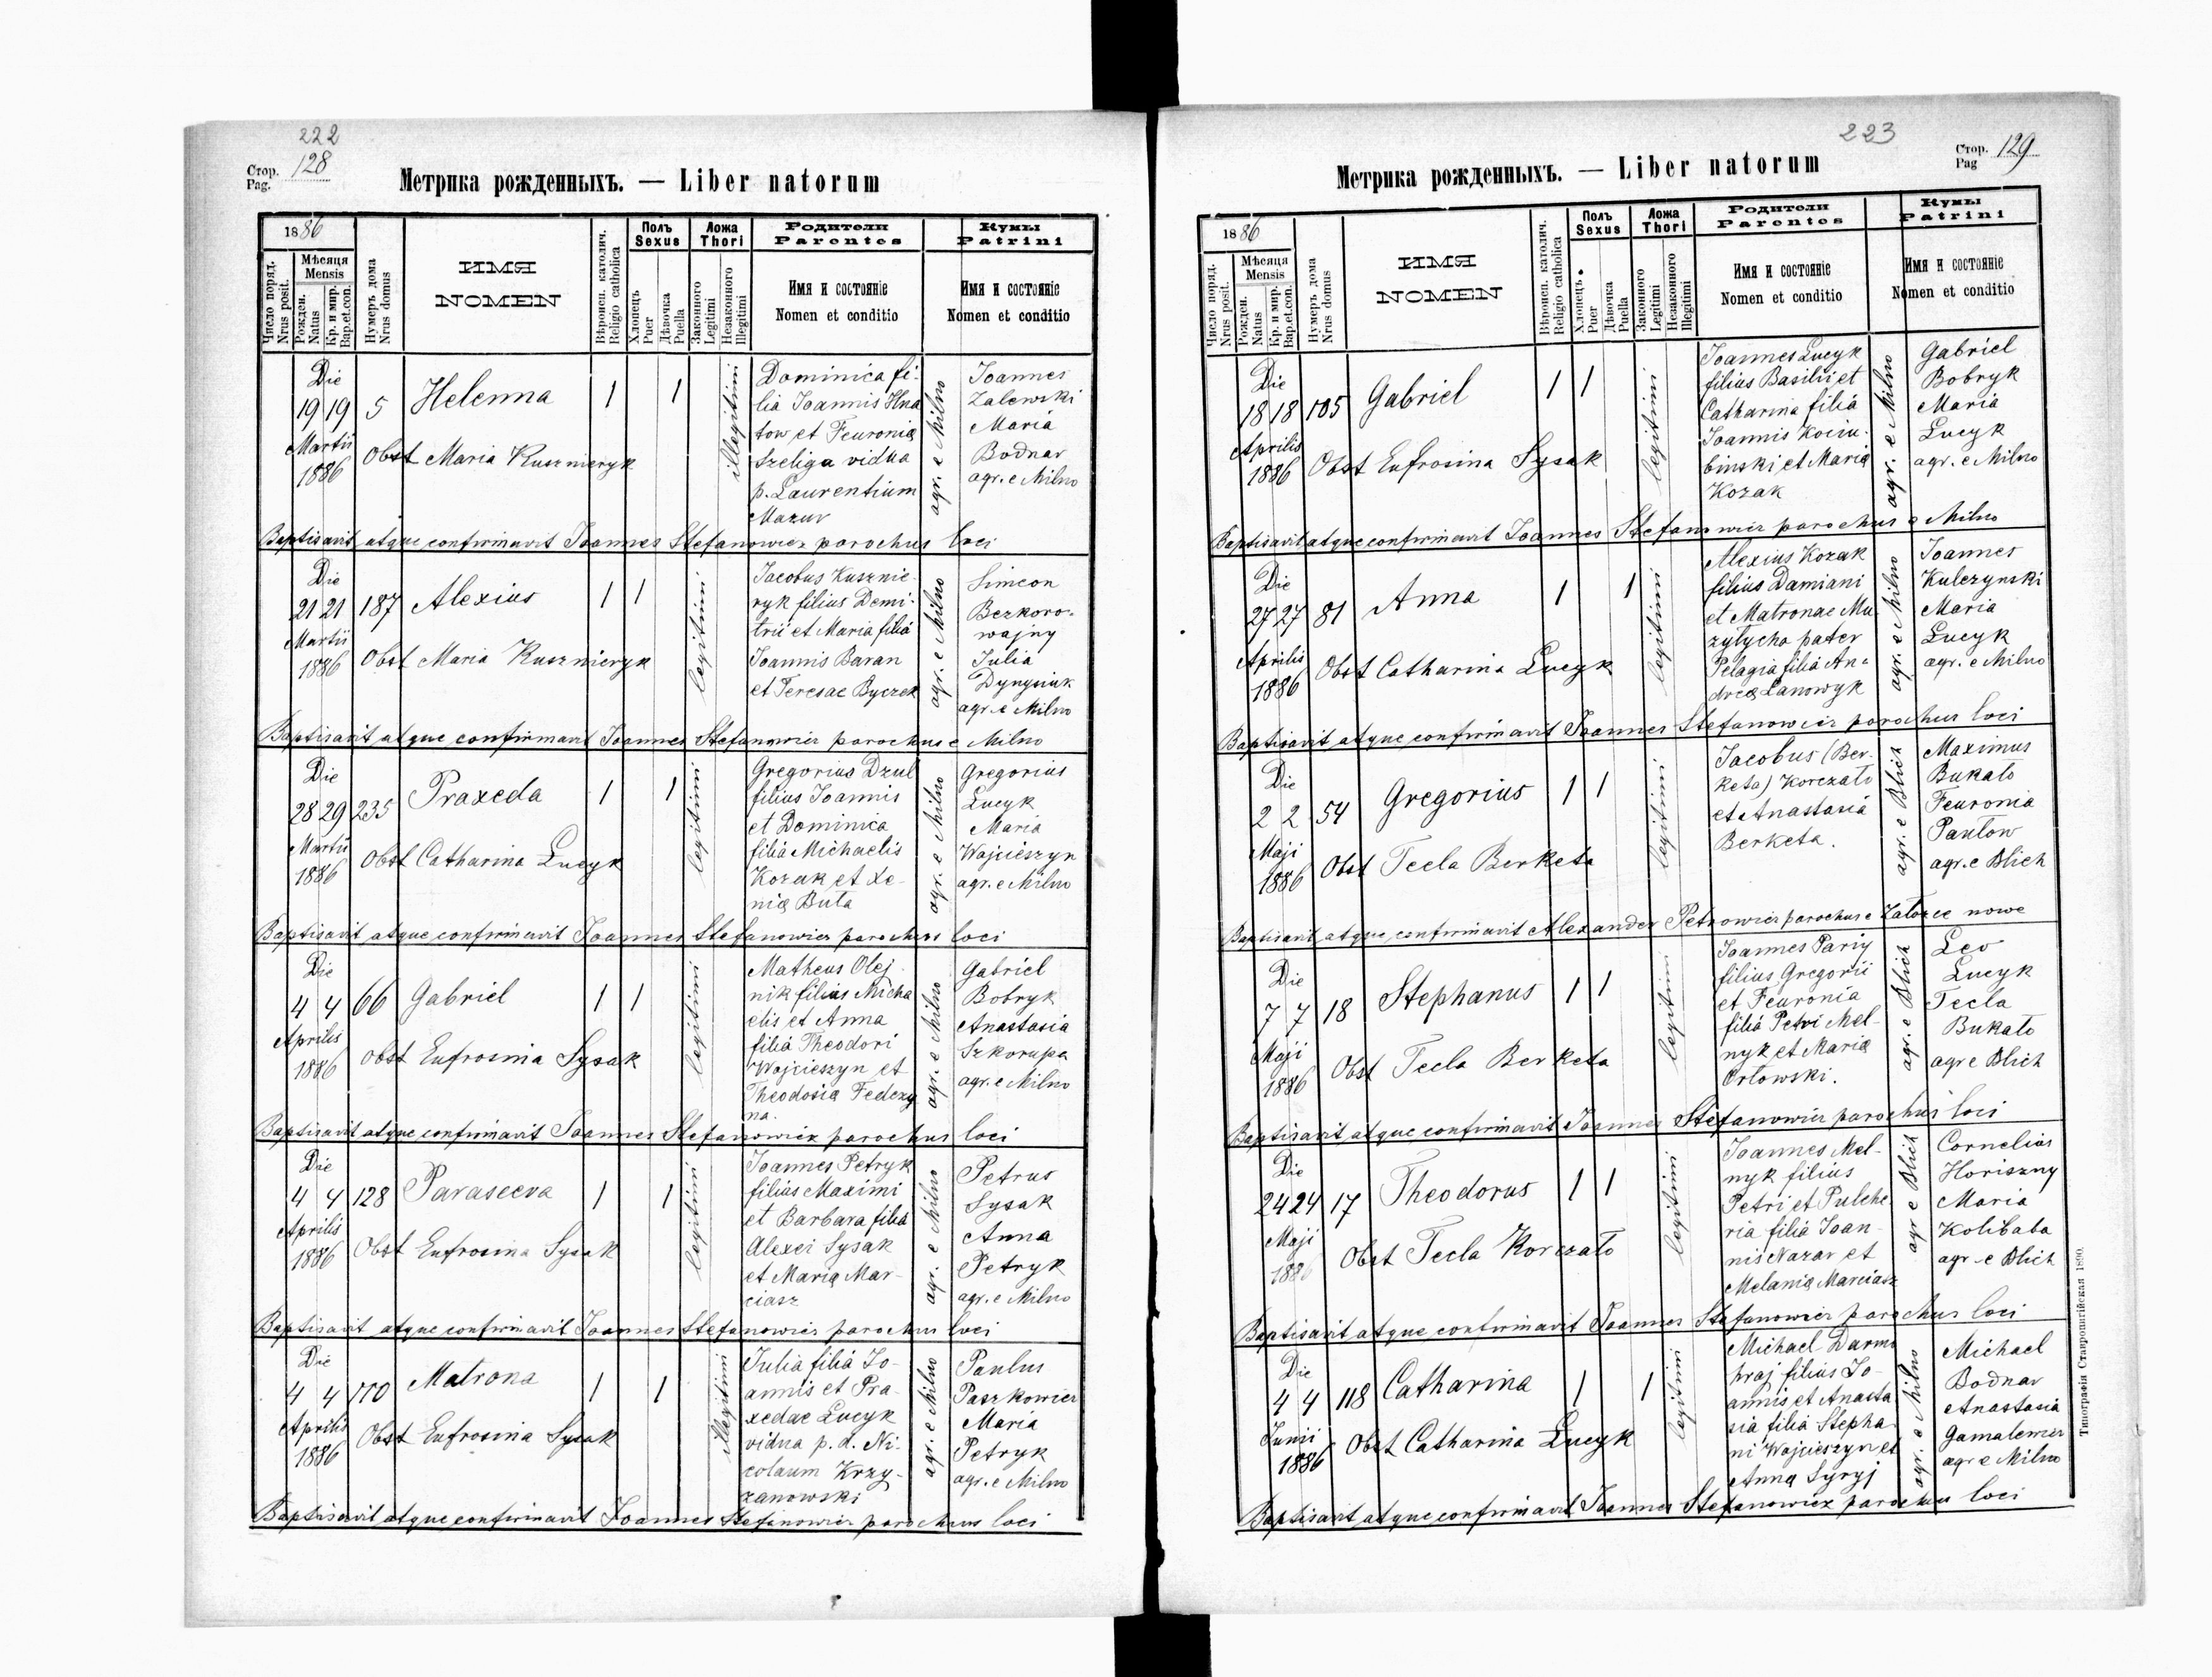 222
Стор. Pag. 128
Метрика рожденныхъ. — Liber natorum
1886
Число поряд. Nrus posit.
Мѣсяця Mensis
Рожден. Natus
Кр. и мир. Bap. et. con.
Нумеръ дома Nrus domus
ИМЯ
NOMEN
Вѣроисп. католич. Religio catholica
Полъ Sexus
Хлопецъ Puer
Дѣвочка Puella
Ложа Thori
Законного Legitimi
Незаконного Illegitimi
Родители Parentes
Имя и состояніе
Nomen et conditio
Кумы Patrini
Имя и состояніе
Nomen et conditio
Die
19 19 5 Helenna 1 1
Martii
1886
Obst Maria Kusznieryk
illegitimi
Dominica fi-
lia Joannis Hna
tow et Feuronią
Szeliga vidua
p. Laurentium
Mazur
agr. e Milno
Joannes
Zalewski
Maria
Bodnar
agr. e Milno
Baptisavit atque confirmavit Joannes Stefanowicz parochus loci
Die
21 21 187 Alexius 1 1
Martii
1886
Obst Maria Kusznieryk
legitimi
Jacobus Kusznie-
ryk filius Demi-
trii et Maria filiá
Joannis Baran
et Teresae Byczek
agr. e Milno
Simeon
Bezkoro-
wajny
Julia
Dynysiuk
agr. e Milno
Baptisavit atque confirmavit Joannes Stefanowicz parochus e Milno
Die
28 29 235 Praxeda 1 1
Martii
1886
Obst Catharina Lucyk
legitimi
Gregorius Dzul
filius Joannis
et Dominica
filiá Michaelis
Kozak et Xe-
nią Buta
agr. e Milno
Gregorius
Lucyk
Maria
Wojcieszyn
agr. e Milno
Baptisavit atque confirmavit Joannes Stefanowicz parochus loci
Die
4 4 66 Gabriel 1 1
Aprilis
1886
Obst Eufrosina Sysak
legitimi
Matheus Olej-
nik filius Micha
elis et Anna
filiá Theodori
Wojcieszyn et
Theodosią Fedczy
na.
agr. e Milno
Gabriel
Bobryk
Anastasia
Szkorupa
agr. e Milno
Baptisavit atque confirmavit Joannes Stefanowicz parochus loci
Die
4 4 128 Parasceva 1 1
Aprilis
1886
Obst Eufrosina Sysak
legitimi
Joannes Petryk
filius Maximi
et Barbara filiá
Alexei Sysak
et Marią Mar-
ciasz
agr. e Milno
Petrus
Sysak
Anna
Petryk
agr. e Milno
Baptisavit atque confirmavit Joannes Stefanowicz parochus loci
Die
4 4 170 Matrona 1 1
Aprilis
1886
Obst Eufrosina Sysak
illegitimi
Julia filiá Jo-
annis et Pra-
xedae Lucyk
vidua p. d. Ni-
colaum Krzy-
zanowski
agr. e Milno
Paulus
Paszkowicz
Maria
Petryk
agr. e Milno
Baptisavit atque confirmavit Joannes Stefanowicz parochus loci
223
Стор. Pag 129
Метрика рожденныхъ. — Liber natorum
1886
Число поряд. Nrus posit.
Мѣсяця Mensis
Рожден. Natus
Кр. и мир. Bap. et. con.
Нумеръ дома Nrus domus
ИМЯ
NOMEN
Вѣроисп. католич. Religio catholica
Полъ Sexus
Хлопецъ Puer
Дѣвочка Puella
Ложа Thori
Законного Legitimi
Незаконного Illegitimi
Родители Parentes
Имя и состояніе
Nomen et conditio
Кумы Patrini
Имя и состояніе
Nomen et conditio
Die
18 18 105 Gabriel 1 1
Aprilis
1886
Obst Eufrosina Sysak
legitimi
Joannes Lucyk
filius Basilii et
Catharina filiá
Joannis Kociu-
binski et Marią
Kozak
agr. e Milno
Gabriel
Bobryk
Maria
Lucyk
agr. e Milno
Baptisavit atque confirmavit Joannes Stefanowicz parochus e Milno
Die
27 27 81 Anna 1 1
Aprilis
1886
Obst Catharina Lucyk
legitimi
Alexius Kozak
filius Damiani
et Matronae Mu
zytycho pater
Pelagia filiá An-
dreą Lanowyk
agr. e Milno
Joannes
Kulczynski
Maria
Lucyk
agr. e Milno
Baptisavit atque confirmavit Joannes Stefanowicz parochus loci
Die
2 2 54 Gregorius 1 1
Maji
1886
Obst Tecla Berketa
legitimi
Jacobus (Ber-
keta) Korczato
et Anastasiá
Berketa.
agr. e Blich
Maximus
Bukato
Feuronia
Pantow
agr. e Blich
Baptisavit atque confirmavit Alexander Petrowicz parochus e Zatozce nowe
Die
7 7 18 Stephanus 1 1
Maji
1886
Obst Tecla Berketa
legitimi
Joannes Pariy
filius Gregorii
et Feuronia
filiá Petri Mel-
nyk et Marią
Ortowski.
agr. e Blich
Leo
Lucyk
Tecla
Bukato
agr e Blich
Baptisavit atque confirmavit Joannes Stefanowicz parochus loci
Die
24 24 17 Theodorus 1 1
Maji
1886
Obst Tecla Korczato
legitimi
Joannes Mel-
nyk filius
Petri et Pulche
ria filiá Joan-
nis Nazar et
Melanią Marciasz
agr e Blich
Cornelius
Horiszny
Maria
Kolibaba
agr e Blich
Baptisavit atque confirmavit Joannes Stefanowicz parochus loci
Die
4 4 118 Catharina 1 1
Junii
1886
Obst Catharina Lucyk
legitimi
Michael Darmo
hraj filius Jo-
annis et Anasta
sia filiá Stepha-
ni Wojcieszyn et
Anną Syryj
agr. e Milno
Michael
Bodnar
Anastasia
Gamalemer
agr e Milno
Baptisavit atque confirmavit Joannes Stefanowicz parochus loci
Типографія Ставропигійская 1890.